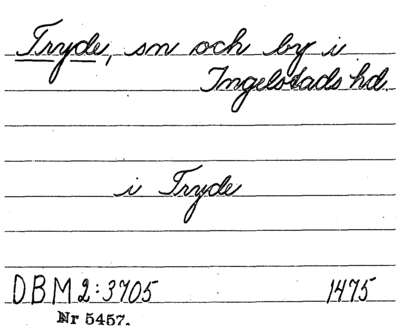 Tryde, sn och by i
Ingelstads hd.
i Tryde
DBM 2:3705 1475
Nr 5457.